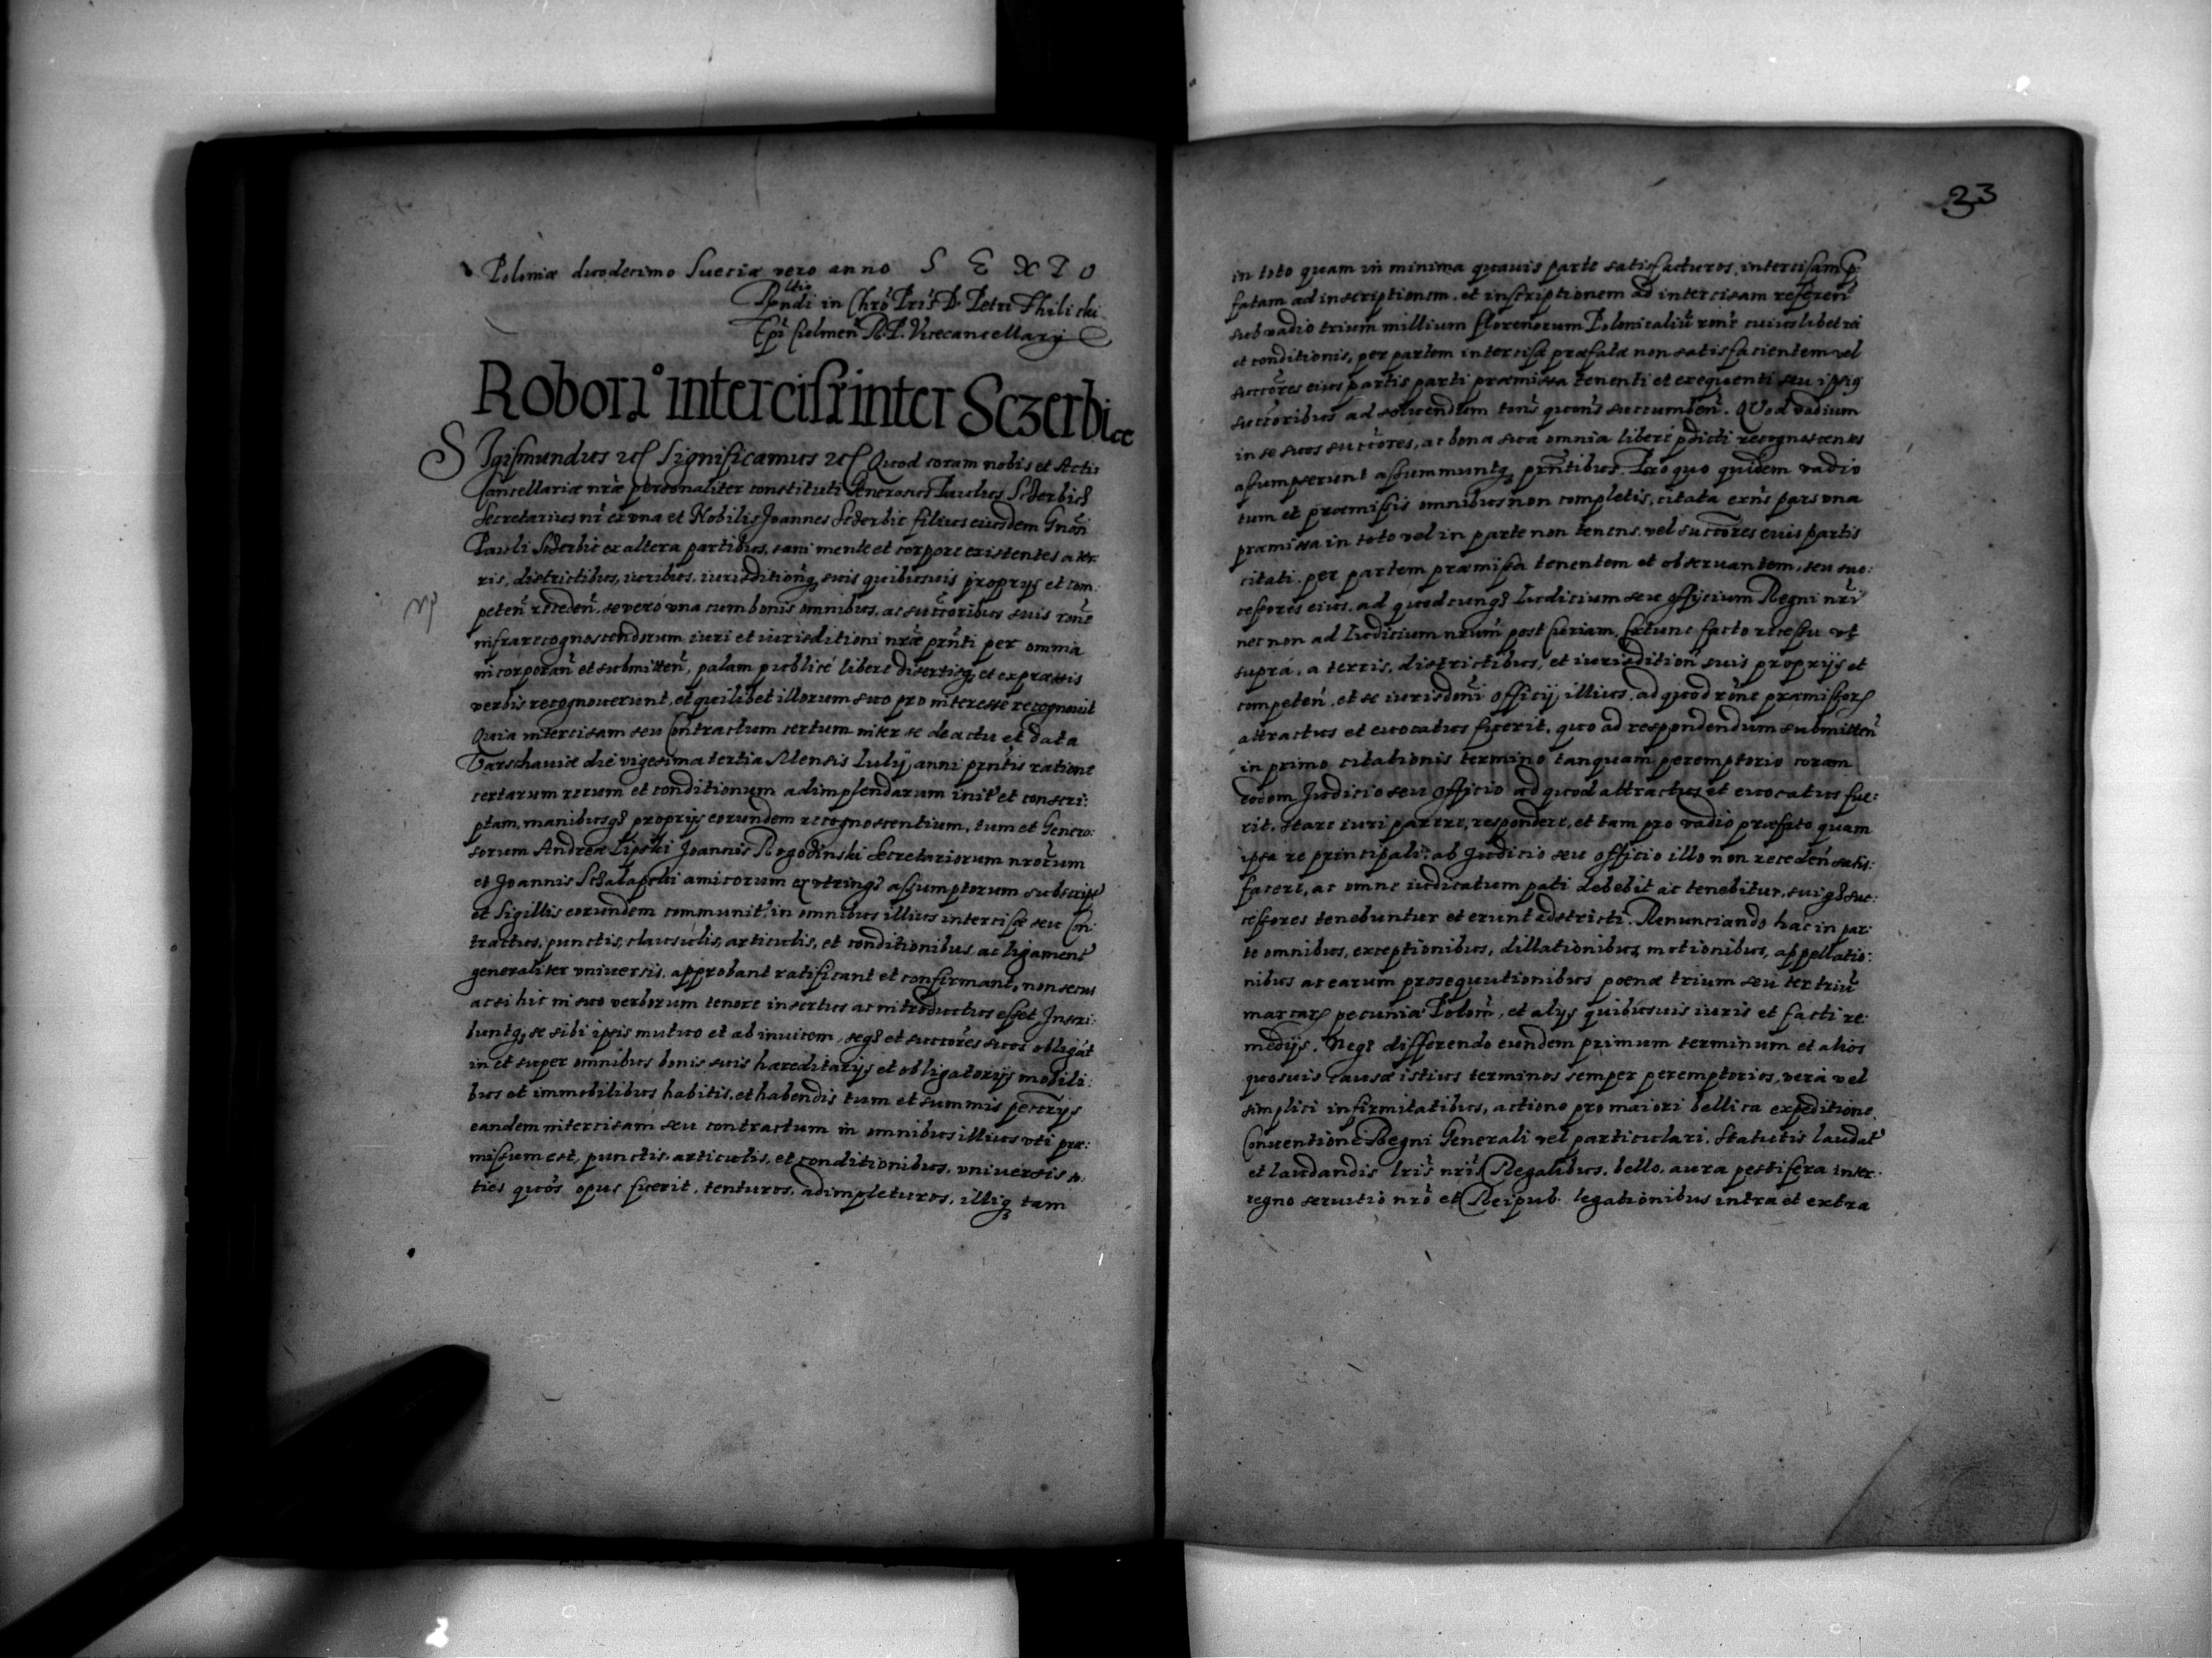 Poloniæ duodecimo Sueciæ vero anno S E X T O
Rndi in Chrõ Pris D. Petri Thilicki
Epĩ Culmeñ R. P. Vicecancellarij
Robor. intercisæ inter Sczerbicc
SJgismundus etc Significamus etc Quod coram nobis et Actis
Cancellariæ nr̃æ personaliter constituti Generosus Paulus Sczerbicz
Secretarius nr̃ ex vna et Nobilis Joannes Sczerbic filius eiusdem Gnãñ
Pauli Sczerbic ex altera partibus, sani mente et corpore existentes a ter:
ris, districtibus, iuribus, iurisditionq₃ suis quibusuis proprijs et com:
peteñ recedeñ, se veró vna cum bonis omnibus, ac succ̃oribus suis rõne
infrarecognoscendorum iuri et iurisditioni nr̃æ prñti per omnia
incorporañ et submitteñ, palam publicé liberé disertisq₃ et expressis
verbis recognouerunt, et quilibet illorum suo pro interesse recognouit
Quia intercisam seu Contractum certum inter se de actu et data
Varschauiæ die vigesima tertia Mensis Iulij anni prñtis ratione
certarum rerum et conditionum adimplendarum initũ et conscri:
ptam, manibusq₃ proprijs eorundem recognoscentium, tum et Genero:
sorum Andreæ Lipski Joannis Rogozinski Secretariorum nrõrum
et Joannis Sczalapski amicorum ex vtrinq₃ assumptorum subscript̃
et Sigillis eorundem communit̃, in omnibus illius intercisæ seu Con:
tractus, punctis, clausulis, articulis, et conditionibus ac ligament̃
generaliter vniuersis, approbant ratificant et confirmant, non secus
ac si hic in suo verborum tenore insertus ac introductus esset Inscri:
buntq₃ se sibi ipsis mutuo et ab inuicem, seq₃ et succ̃ores suos obligãt
in et super omnibus bonis suis hæreditarijs et obligatorijs mobili:
bus et immobilibus habitis, et habendis tum et summis pec̃rijs
eandem intercisam seu contractum in omnibus illius vti præ:
missum est, punctis, articulis, et conditionibus, vniuersis to:
ties quõs opus fuerit, tenturos, adimpleturos, illiq₃ tam
23
in toto quam in minima quauis parte satisfacturos, intercisam p̃:
fatam ad inscriptionem, et inscriptionem ad intercisam refereñ
sub vadio trium millium florenorum Polonicaliũ rõne cuiuslibet rei
et conditionis, per partem intercisæ præfatæ non satisfacientem vel
succ̃ores eius partis parti præmissa tenenti et exequenti seu ipsiq
succ̃oribus ad soluendum toñs quoñs succumbeñ. Quod vadium
in se suos succ̃ores, ac bona sua omnia liberé p̃dicti recognoscentes
assumpserunt assummuntq₃ prñtibus. Pro quo quidem vadio
tum et præmissis omnibus non completis, citata exñs pars vna
præmissa in toto vel in parte non tenens, vel succ̃ores eius partis
citati, per partem præmissa tenentem et obseruantem, seu suc:
cessores eius, ad quodcunq₃ Iudicium seu officium Regni nr̃i
nec non ad Iudicium nrũm post Curiam, Extunc facto recessu vt
suprá, a terris, districtibus, et iurisditioñ suis proprijs et
competeñ, et se iurisdoñi officij illius, ad quod rõne præmissor̃
attractus et euocatus fuerit, quo ad respondendum submitteñ
in primo citationis termino tanquam peremptorio coram
eodem Judicio seu officio ad quod attractus et euocatus fue:
rit, stare iuri parere, respondere, et tam pro vadio præfato quam
ipsa re principali, ab Judicio seu officio illo non recedeñ satis:
facere, ac omne iudicatum pati debebit ac tenebitur, suiq₃ suc:
cessores tenebuntur et erunt adstricti. Renunciando hac in par:
te omnibus, exceptionibus, dillationibus, motionibus, appellatio:
nibus ac earum prosequutionibus poenæ trium seu ter triũ
marcar̃ pecuniæ Poloñ, et alijs quibusuis iuris et facti re:
medijs. Neq₃ differendo eundem primum terminum et alios
quosuis causæ istius terminos semper peremptorios, vera vel
simplici infirmitatibus, actione pro maiori bellica expeditione,
Conuentione Regni Generali vel particulari. Statutis laudat̃
et laudandis lr̃is nr̃is Regalibus, bello, aura pestifera inter:
regno seruitio nrõ et Reipub. legationibus intra et extra